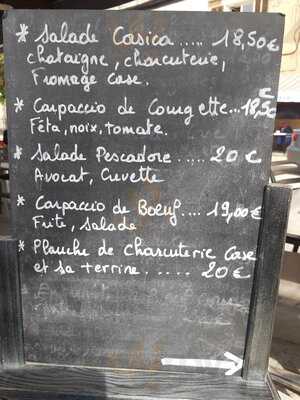 * Salade Casica ..... 18,50€
chataigne, charcuterie,
Fromage Corse.
* Carpaccio de Courgette... 18,50€
Féta, noix, tomate.
* Salade Pescadore ..... 20€
Avocat, Crevette
* Carpaccio de Boeuf.... 19,00€
Frite, Salade
* Planche de Charcuterie Corse
et sa terrine. ..... 20€